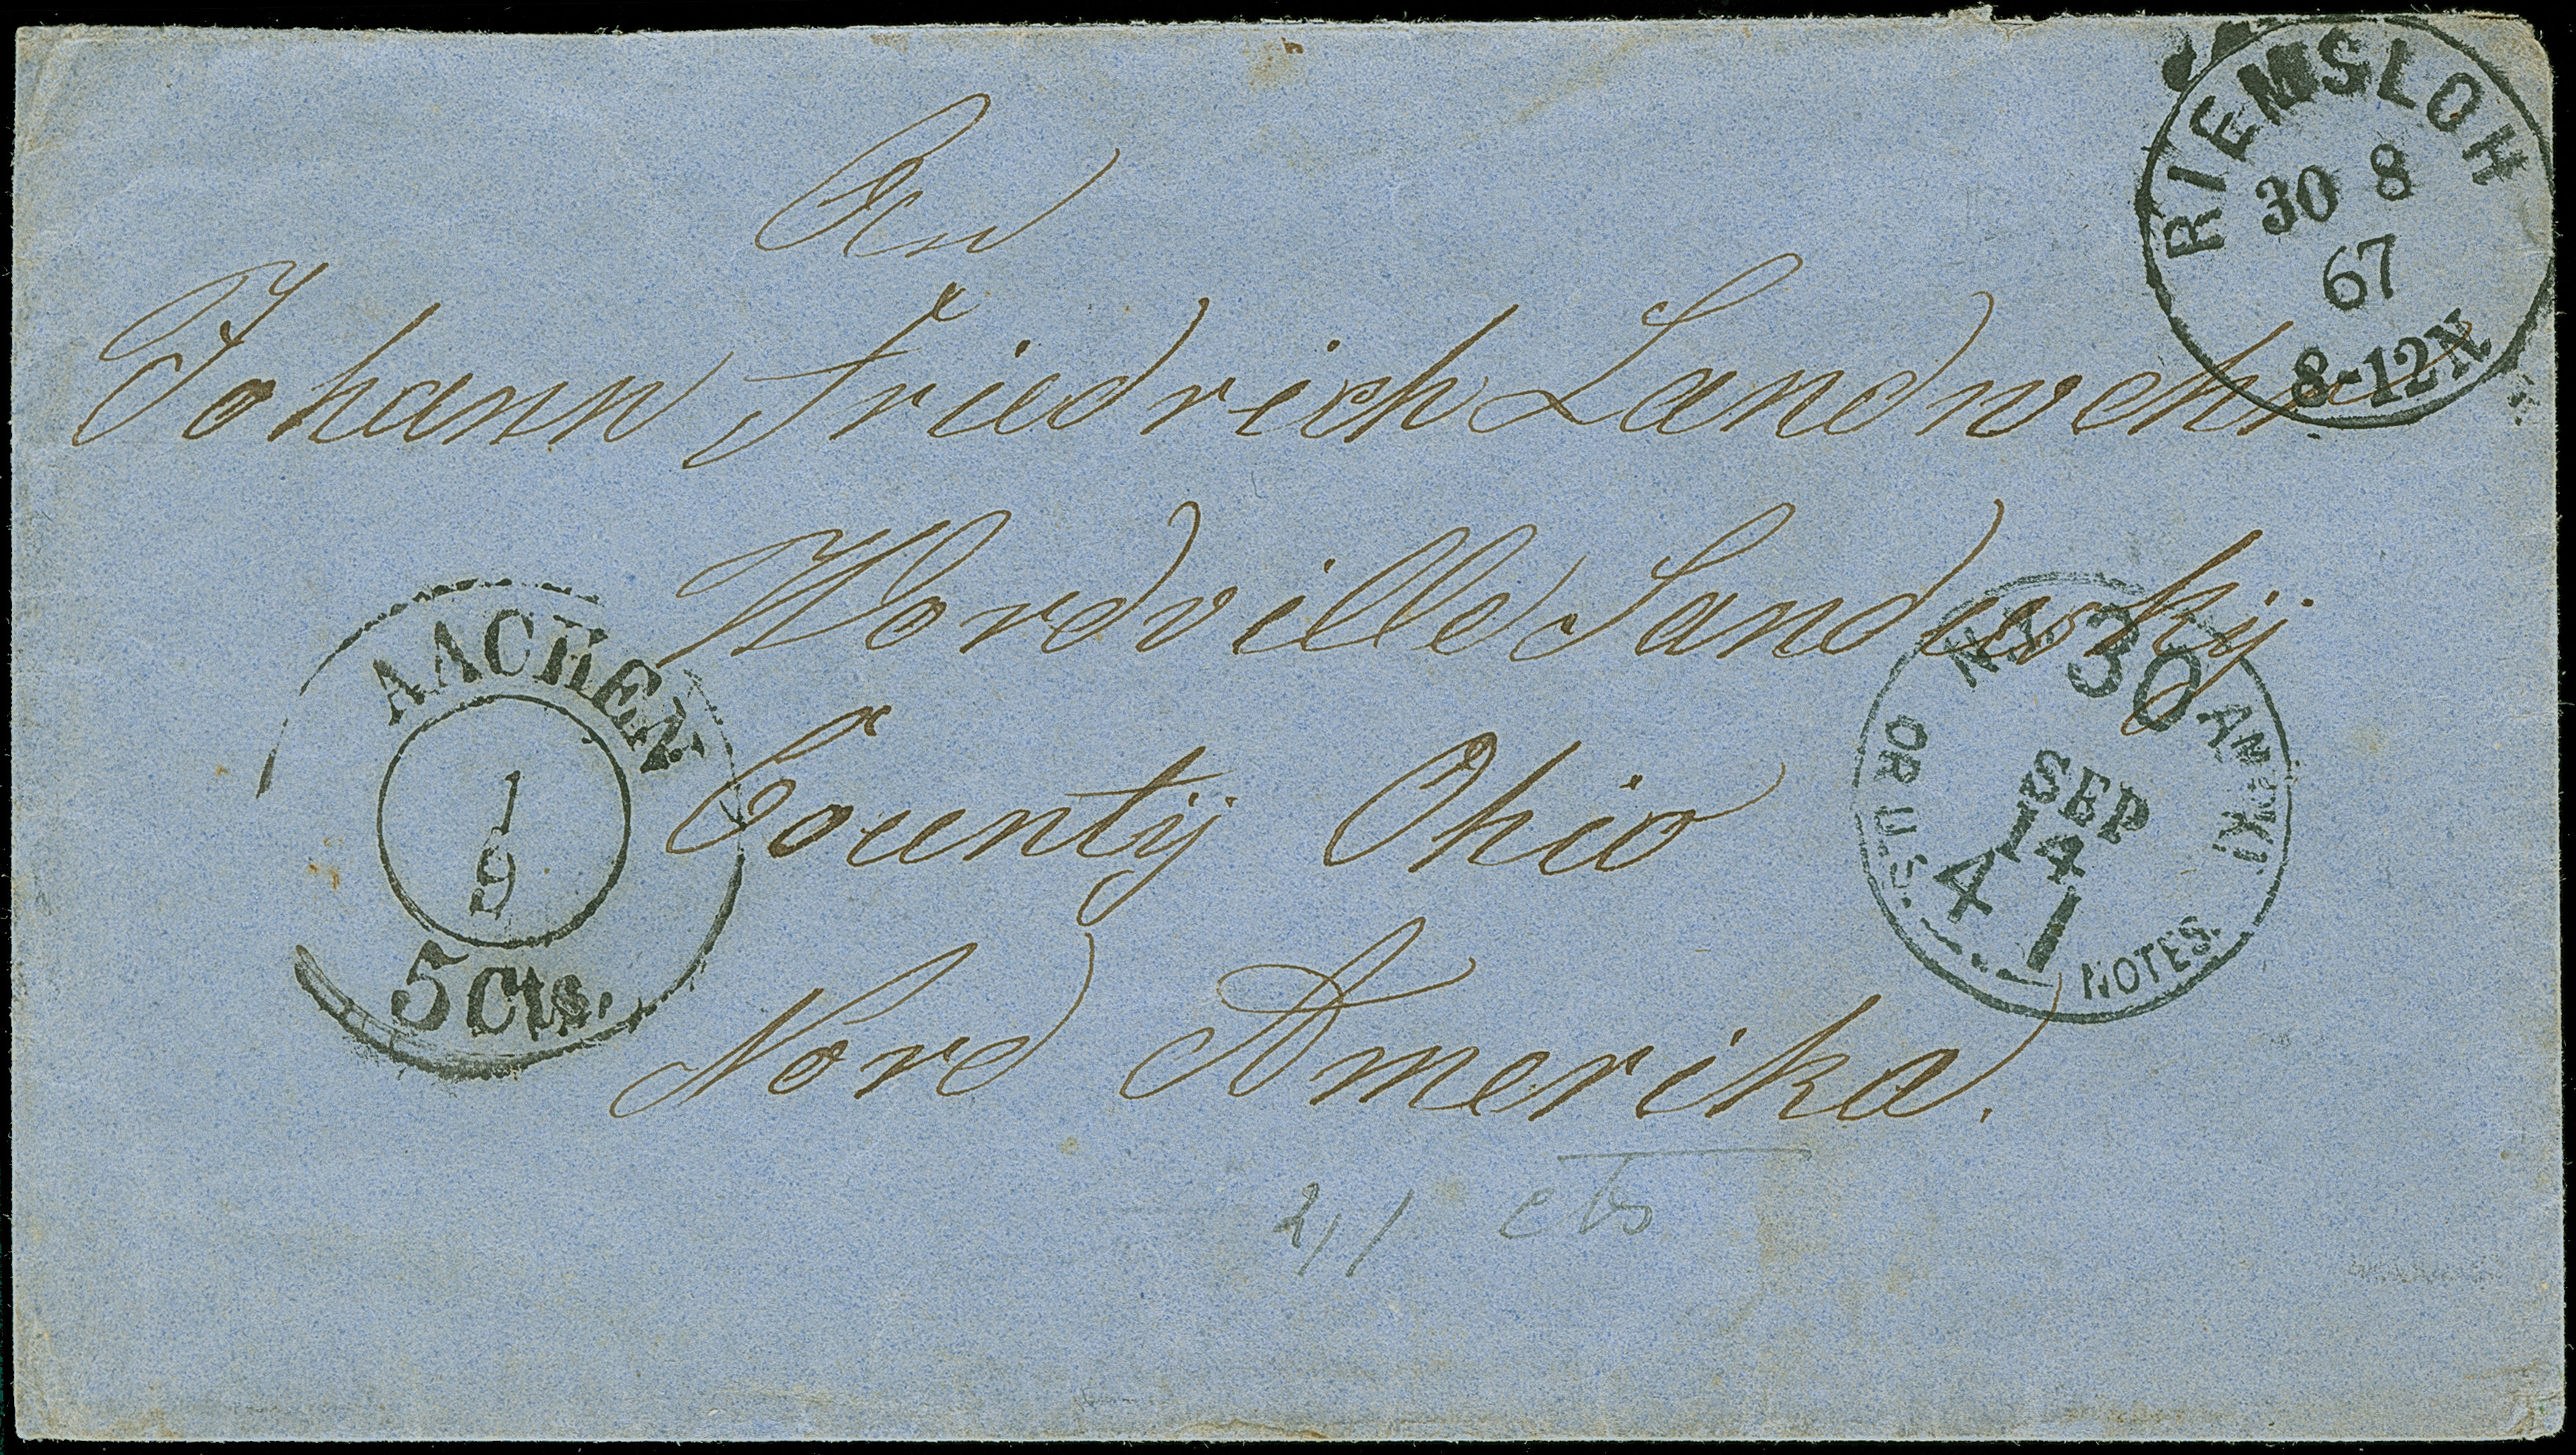 RIEMSLOH
30 8
67
8-12N
An
Johann Friedrich Landwehr
Wordville Sandusky
County Ohio
Nord Amerika.
AACHEN
1
9
5 Cts.
N.Y. 30 AM. PKT.
SEP
14
41
OR U.S. NOTES.
cts